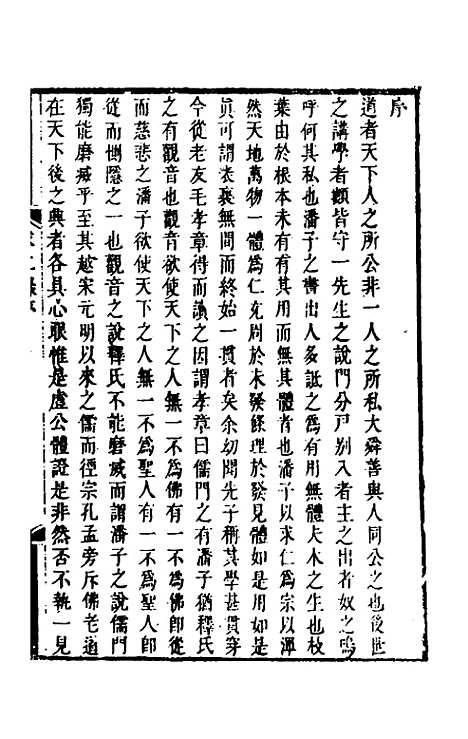 序
道者天下人之所公非一人之所私大舜善與人同公之也後世
之講學者顧皆守一先生之說門分戸別入者主之出者奴之嗚
呼何其私也潘子之書出人多詆之為有用無體夫木之生也枝
葉由於根本未有有其用而無其體者也潘子以求仁為宗以渾
然天地萬物一體為仁充周於未發條理於發見體如是用如是
眞可謂表裏無間而終始一貫者矣余幼聞先子稱其學甚貫穿
今從老友毛孝章得而讀之因謂孝章曰儒門之有潘子猶釋氏
之有觀音也觀音欲使天下之人無一不為佛有一不為佛即從
而慈悲之潘子欲使天下之人無一不為聖人有一不為聖人即
從而惻隱之一也觀音之說釋氏不能磨滅而謂潘子之說儒門
獨能磨滅乎至其越宋元明以來之儒而徑宗孔孟旁斥佛老適
在天下後之與者各具心眼惟是虛公體證是非然否不執一見